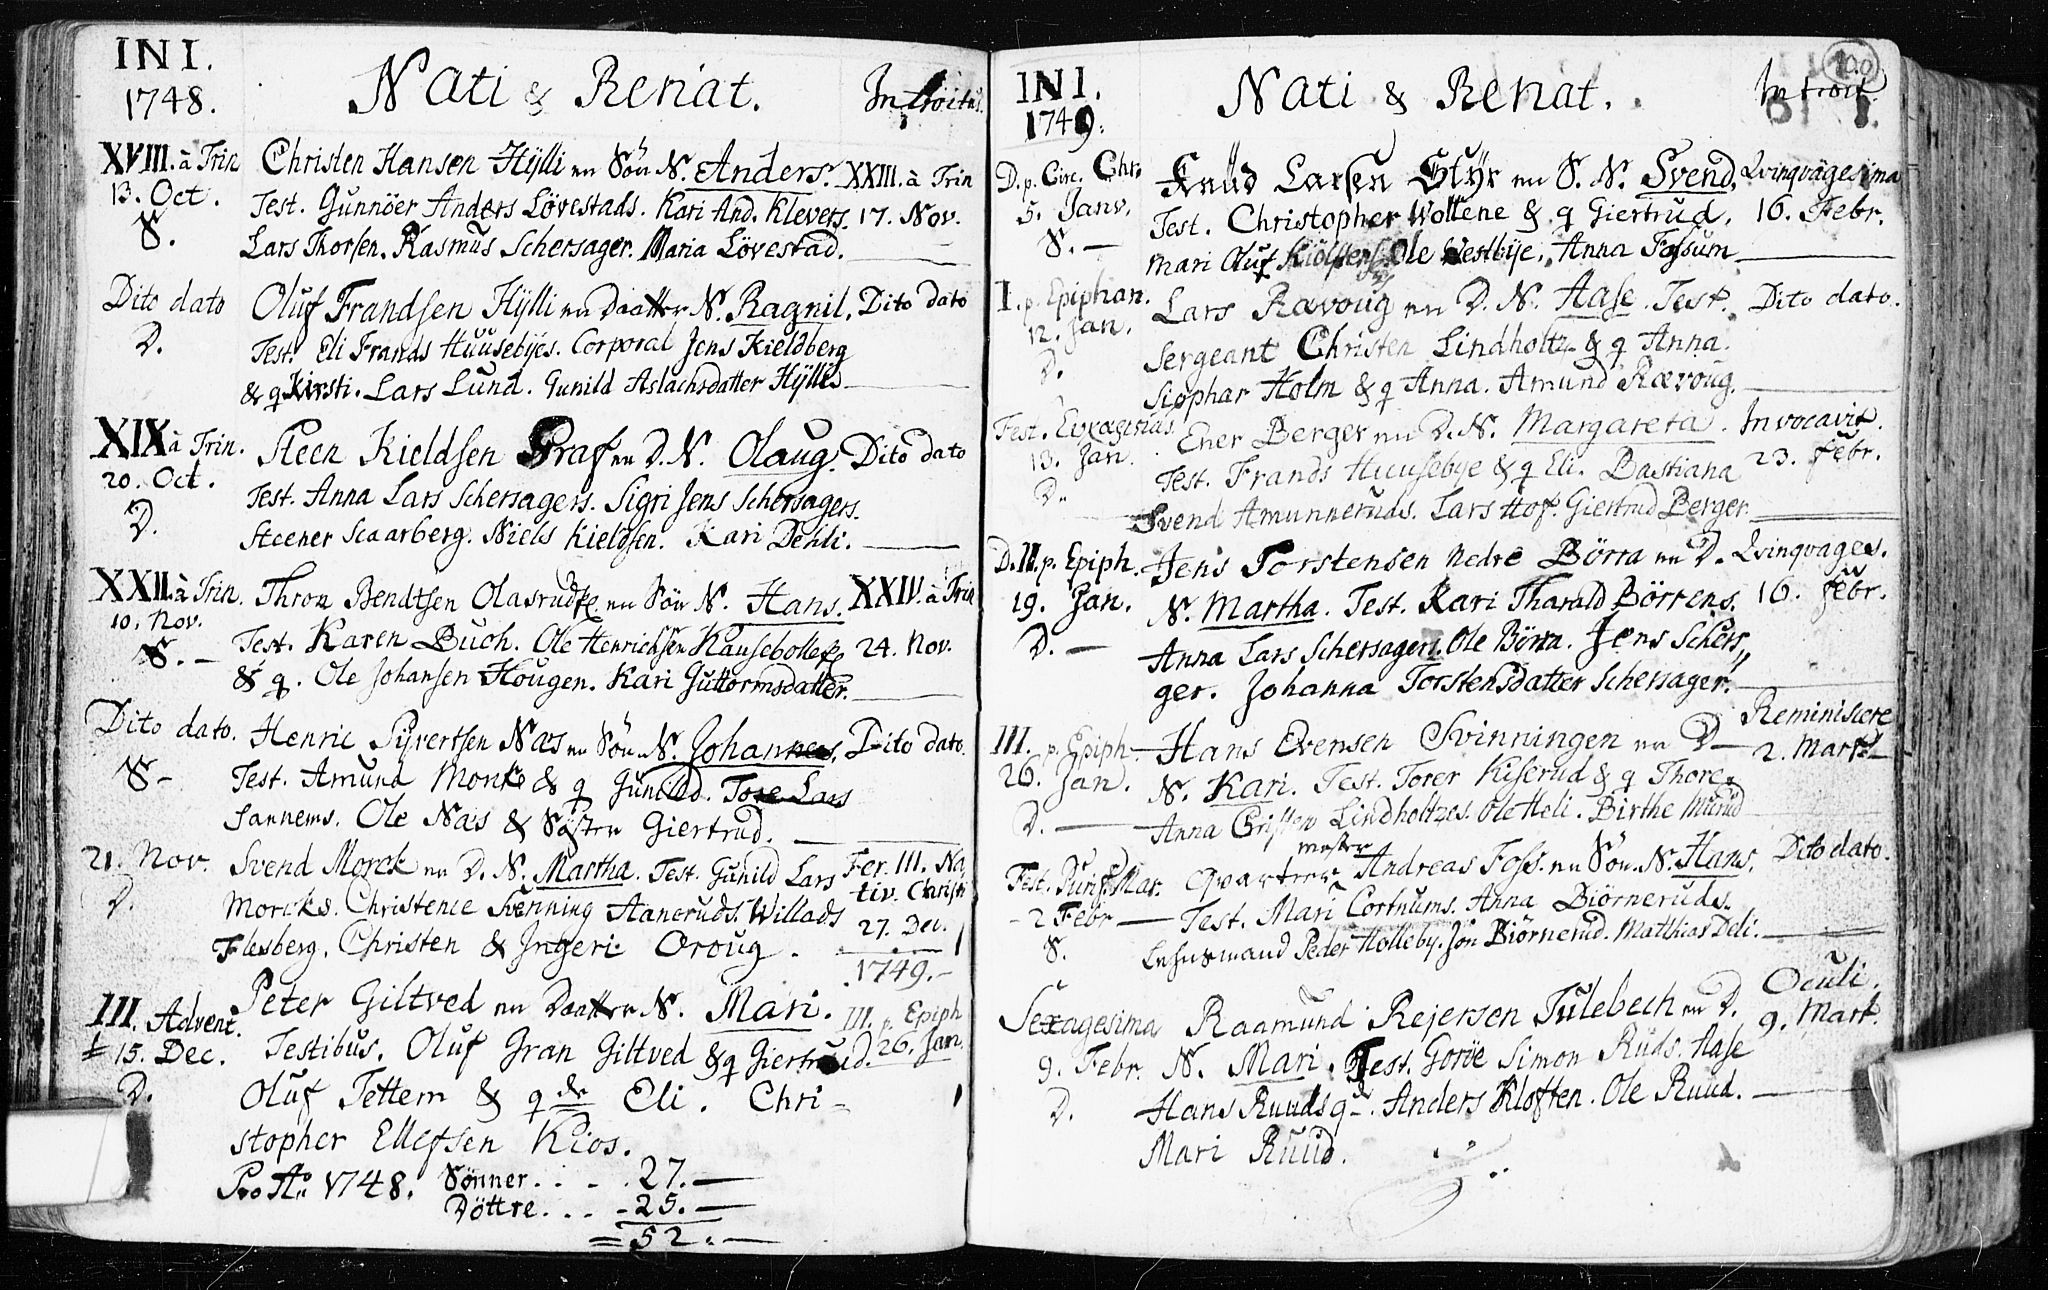 INI.
1748.
Nati & Renat.
Introitus.
XVIII. à Trin
13. Oct.
S.
Christen Hansen Hÿlli en Sön N. Anders.
Test. Gunnöer Anders Lövestads. Kari And. Klevers.
Lars Thorsen. Rasmus Schersager. Maria Lövestad.
XXIII. à Trin
17. Nov.
Dito dato
D.
Oluf Frandsen Hÿlli en Daatter N. Ragnil.
Test. Eli Frands Huusebÿes. Corporal Jens Kieldberg
& q Kirsti. Lars Lund. Gunild Aslachsdatter Hÿllis
Dito dato
XIX à Trin.
20. Oct.
D.
Steen Kieldsen Graf en D. N. Olaug.
Test. Anna Lars Schersagers. Sigri Jens Schersagers.
Steener Scaarberg. Niels Kieldsen. Kari Dehli.
Dito dato
XXII. à Trin.
10. Nov.
S. -
Thron Bendtsen Olasrudse en Sön N. Hans.
Test. Karen Buch. Ole Henrichsen Hausebollese
& q. Ole Johansen Hougen. Kari Guttormsdatter.
XXIV. à Trin
24. Nov.
Dito dato.
S -
Henric Sÿvertsen Næs en Sön N. Johannes.
Test. Amund Monke & q Gunild. Tore Lars
sannems. Ole Næs & Söster Giertrud.
Dito dato.
21. Nov.
D.
Svend Morck en D. N. Martha. Test. Gunild Lars
Morcks. Christence Svenning Aaneruds. Willads
Flesberg. Christen & Ingeri Oroug.
Fer. III. Na,
tiv. Christi
27. Dec.
1749. -
III. Advent.
15. Dec.
D.
Peter Giltved en Daatter N. Mari.
Testibus. Oluf Gran Giltved & q Giertruid.
Oluf Tettem & q de Eli. Chri-
stopher Ellefsen Kios.
III. p. Epiph
26. Jan.
Pro Ao 1748. Sönner . . . . 27. -
Döttre . . . - 25. -
= 52. -
INI.
1749.
Nati & Renat.
Introit.
100
D. p. Circ. Chr.
5. Janv.
S. -
Knud Larsen Stÿr en S. N. Svend.
Test. Christopher Wollene & q Giertrud.
Mari Oluf Kiölsens Ole Westbÿe. Anna Fossum
Qvinqvagesima
16. Febr.
I. p. Epiphan.
12. Jan.
D.
Lars Rævoug en D. N. Aase. Test.
Sergeant Christen Lindholtz & q Anna.
Siophar Holm & q Anna. Amund Rævoug.
Dito dato.
13. Jan.
D.
Ener Berger en D. N. Margareta.
Test. Frands Huusebÿe & q Eli. Bastiana
Svend Amunneruds. Lars Hof. Giertrud Berger.
Invocavit.
23. Febr.
D. II. p. Epiph.
19. Jan.
D. -
Jens Torstensen Nedre Börra en D.
N. Martha. Test. Kari Tharald Börrens.
Anna Lars Schersagers. Ole Börra. Jens Schers,,
ger. Johanna Torstensdatter Schersager.
Qvinqvages.
16. Febr.
III. p. Epiph.
26. Jan.
D. -
Hans Evensen Svinningen en D-
N. Kari. Test. Torer Kiserud & q Thore.
Anna Christen Lindholtzes. Ole Heli. Birthe Murud
Reminiscere
2. Mart.
Fest. Purif. Mar.
- 2 Febr -
S.
Qvarter mester Andreas Foss. en Sön. N. Hans.
Test. Mari Cortnums. Anna Biörneruds.
Lehnsmand Peder Holleby. Jon Biörnerud. Matthias Deli.
Dito dato.
Sexagesima
9. Febr.
D.
Raamund Rejersen Tulebech en D.
N. Mari. Test. Goröe Simon Ruds. Aase
Hans Ruuds q-. Anders Kloften. Ole Ruud.
Mari Ruud.
Oculi.
9. Mart.